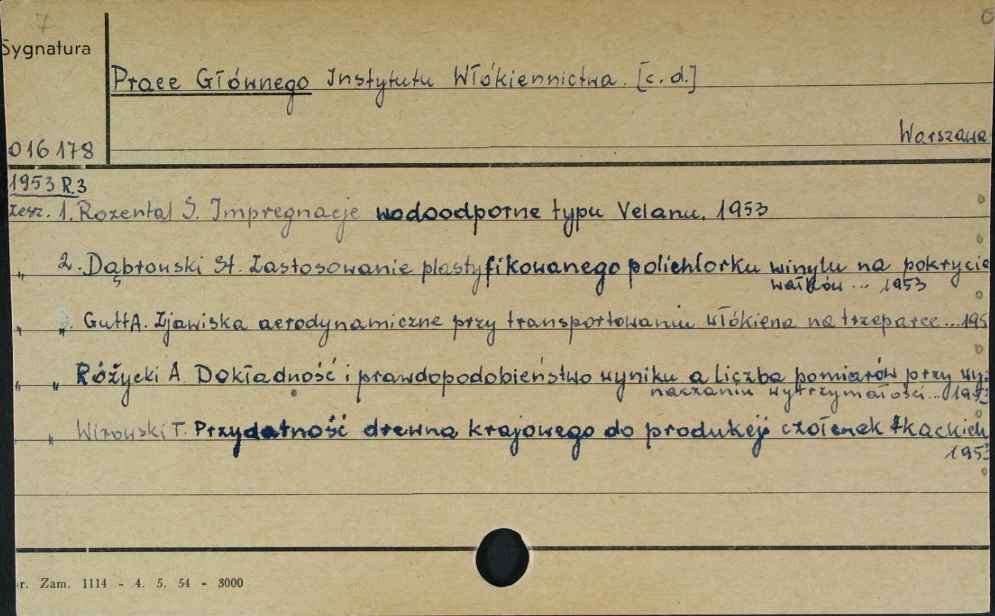 7
Sygnatura
Prace Głównego Instytutu Włókiennictwa. [c.d.]
Warszawa
016178
1953 R.3
zesz. 1. Rozental S. Impregnacje wodoodporne typu Velanu. 1953
" 2. Dąbrowski St. Zastosowanie plastyfikowanego polichlorku winylu na pokrycie
wałków... 1953
" " Gutt A. Zjawiska aerodynamiczne przy transportowaniu włókiena na trzeparce...195
" " Różycki A. Dokładność i prawdopodobieństwo wyniku a liczba pomiarów przy wyz-
naczaniu wytrzymałości...1953
" " Wirowski T. Przydatność drewna krajowego do produkcji czółenek tkackich
1953
r. Zam. 1114 - 4. 5. 54 - 3000